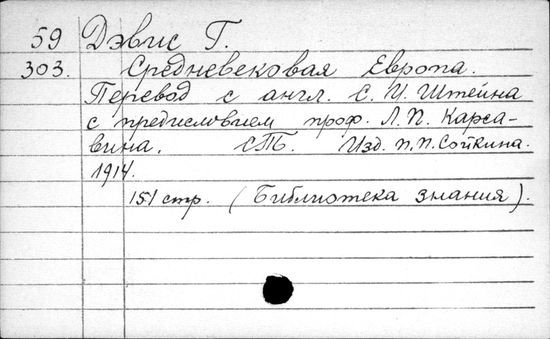 59 Дэвис Г.
303. Средневековая Европа.
Перевод с англ. С. И. Штейна
с предисловием проф. Л. П. Карса-
вина. СПБ. Изд. П. П. Сойкина.
1914.
151 стр. (Библиотека знания).